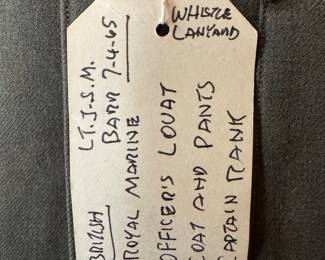 WHISTLE
LANYARD
LT. J.S.M.
BARR 7-4-65
BRITISH
ROYAL MARINE
OFFICER'S LOVAT
COAT AND PANTS
CAPTAIN RANK